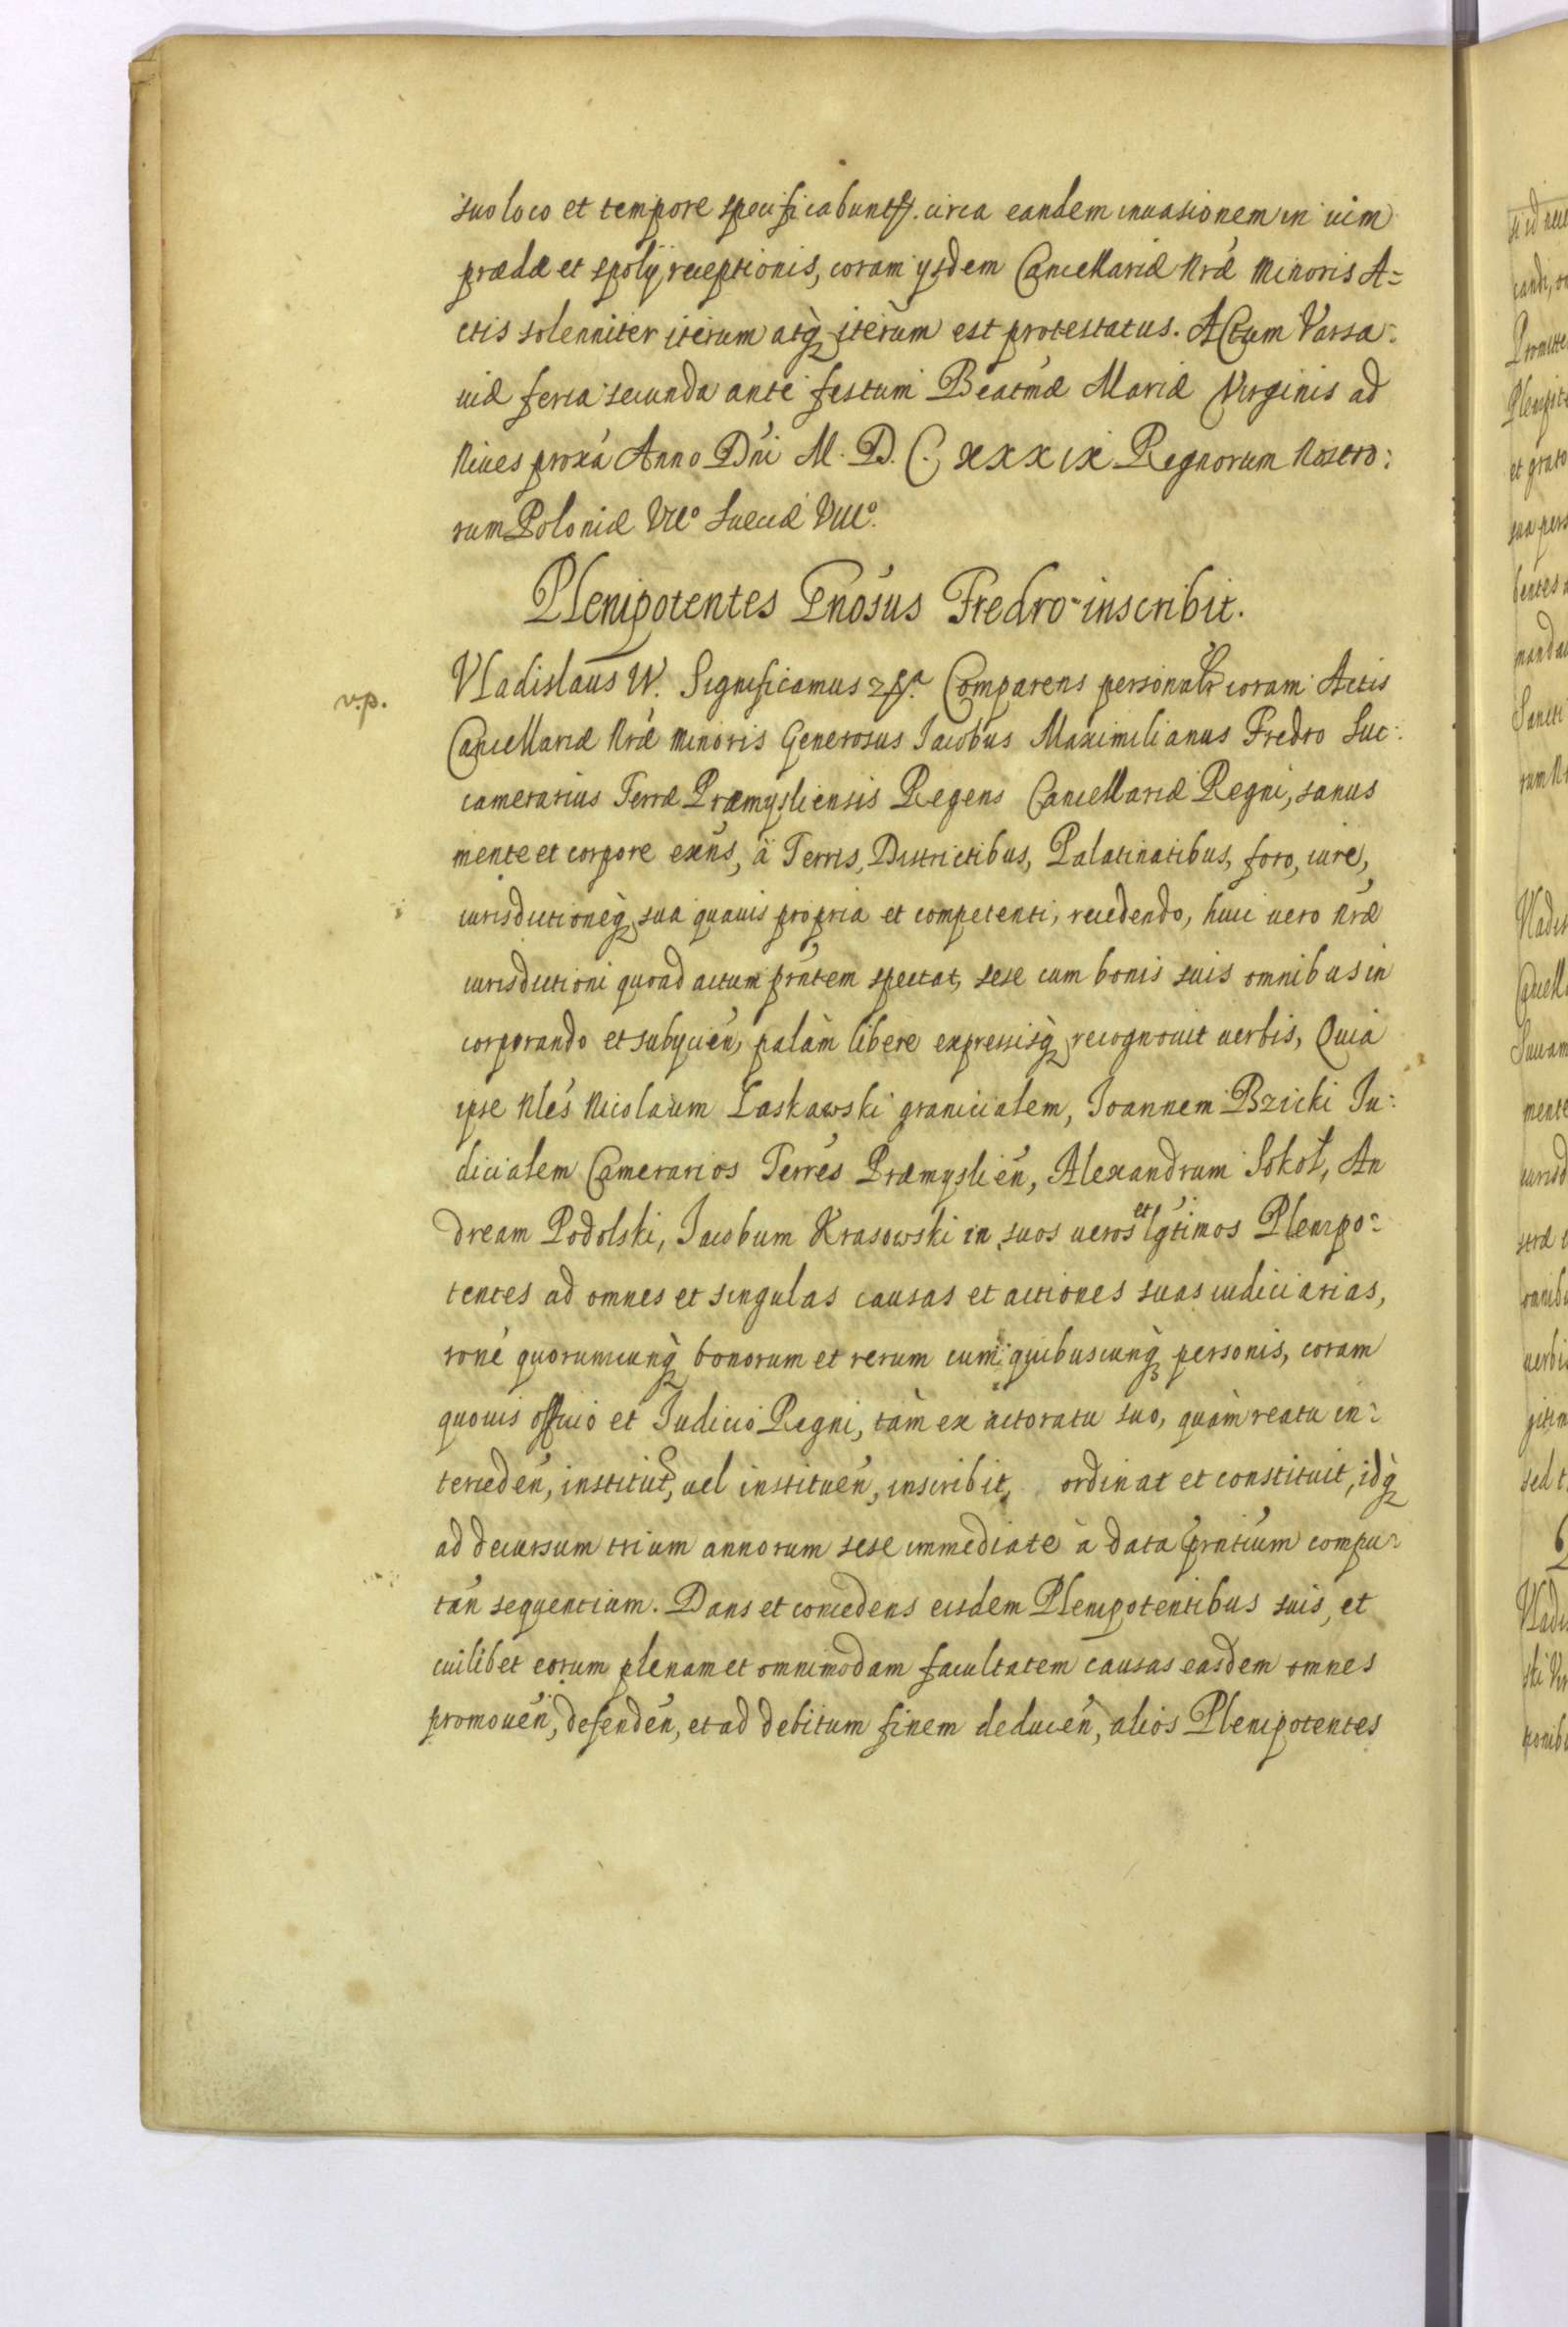 suo loco et tempore specificabuntr. circa eandem inuasionem in uim
prædæ et spolij receptionis, coram ijsdem Cancellariæ Nræ Minoris A=
ctis solenniter iterum atq̀ iterùm est protestatus. Actum Varsa:
uiæ feria secunda ante festum Beatmæ Mariæ Virginis ad
Niues proxá Anno Dńi M. D. C. XXXIX Regnorum Nostro:
rum Poloniæ VIIº Sueciæ VIIIº.
Plenipotentes Gnósus Fredro inscribit.
v.p.
Vladislaus IV. Significamus Comparens personalr coram Actis
Cancellariæ Nræ Minoris Generosus Iacobus Maximilianus Fredro Suc:
camerarius Terræ Præmysliensis Regens Cancellariæ Regni, sanus
mente et corpore exńs, à Terris, Districtibus, Palatinatibus, foro, iure,
iurisdictioneq̀ sua quauis propria et competenti, recedendo, huic uero Nræ
iurisdictioni quoad actum prńtem spectat, sese cum bonis suis omnibus in
corporando et subijcień, palàm libere expressisq̀ recognouit uerbis, Quia
ipse Nlés Nicolaum Laskawski granicialem, Ioannem Bzicki Iu:
dicialem Camerarios Terrés Præmyslień, Alexandrum Sokoł, An
dream Podolski, Iacobum Krasowski in suos ueros et lgtimos Plenipo:
tentes ad omnes et singulas causas et actiones suas iudiciarias,
roné quorumcunq̀ bonorum et rerum cum quibuscunq̀ personis, coram
quouis officio et Iudicio Regni, tàm ex actoratu suo, quàm reatu in:
terceden, institut, uel instituen, inscribit, ordinat et constituit, idq̀
ad decursum trium annorum sese immediate à data prńtium compu:
tań sequentium. Dans et concedens eisdem Plenipotentibus suis, et
cuilibet eorum plenam et omnimodam facultatem causas easdem omnes
promoueń, defendeń, et ad debitum finem deduceń, alios Plenipotentes